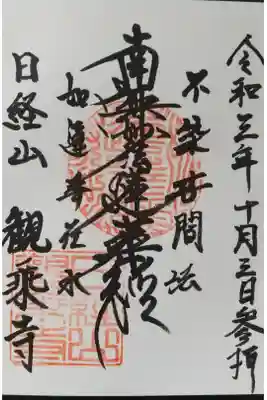 令和三年十月三日参拝
不染世間法
南無妙法蓮華経
如蓮華在水
日経山
観乗寺